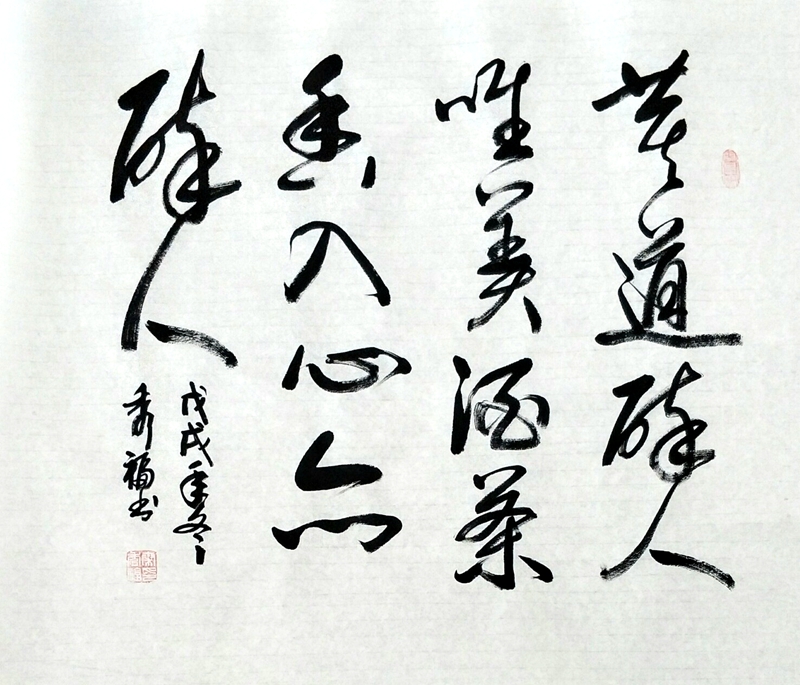 莫道醉人
唯美酒茶
香入心亦
醉人
戊戌年冬
秀福书